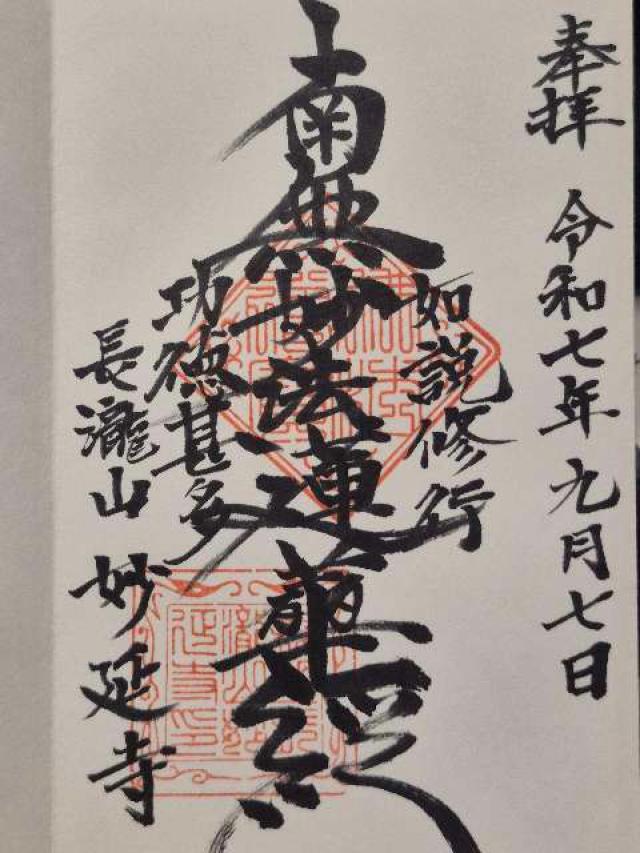 奉拝 令和七年九月七日
如説修行
南無妙法蓮華経
功徳甚多
長瀧山 妙延寺